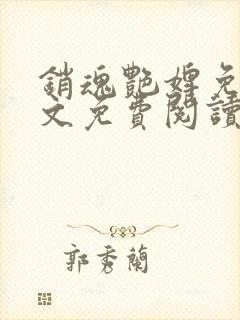 銷魂艷婢免
文免費閱讀
郭秀蘭